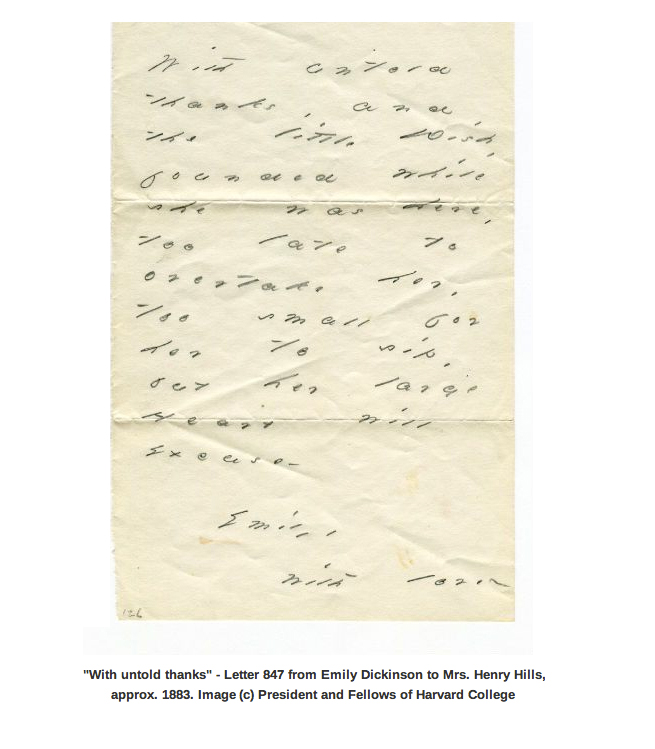 With untold
thanks, and
the little Dish,
founded while
she was here,
too late to
overtake her,
too small for
her to sip,
but her large
Heart will
Excuse -
Emily,
with love -
126
"With untold thanks" - Letter 847 from Emily Dickinson to Mrs. Henry Hills,
approx. 1883. Image (c) President and Fellows of Harvard College